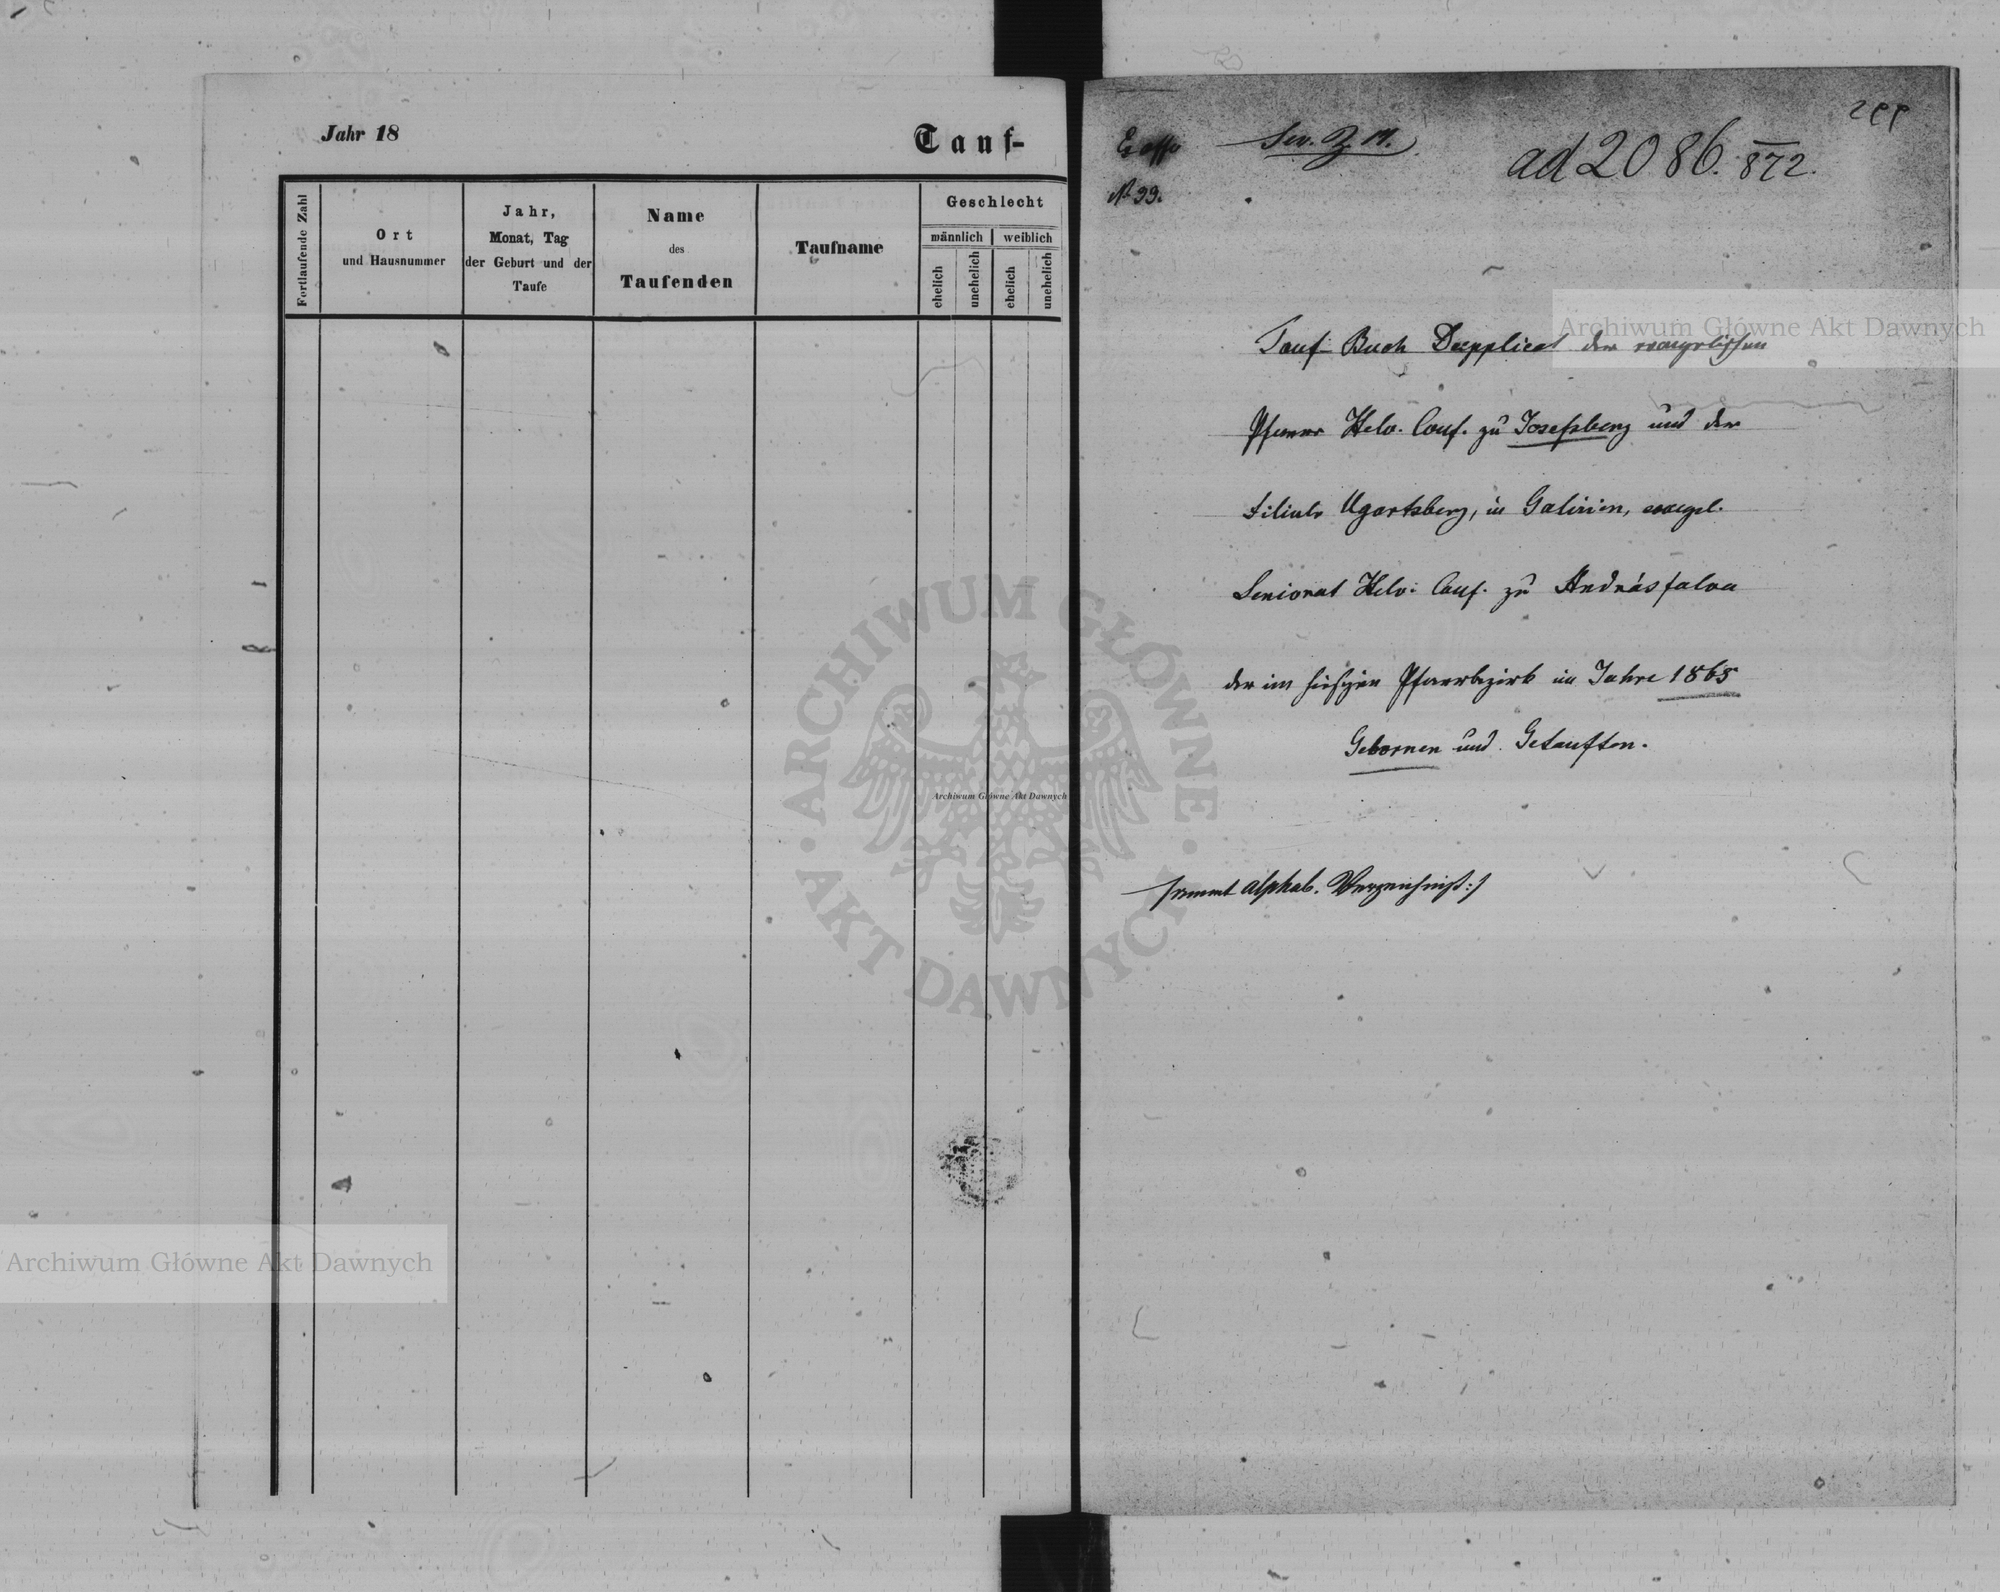 Jahr 18
Tauf-
Fortlaufende Zahl
Ort
und Hausnummer
Jahr,
Monat, Tag
der Geburt und der
Taufe
Name
des
Taufenden
Taufname
Geschlecht
männlich
weiblich
ehelich
unehelich
ehelich
unehelich
Sen. Z. 11.
No 99.
ad 2086. 872.
Tauf-Buch Dupplicat der evangelischen
Pfarre Helv. Conf. zu Josefsberg und der
Filiale Ugartsberg, in Galizien, evangel.
Seniorat Helv: Conf. zu Andrásfalva
der im hiesigen Pfarrbezirk im Jahre 1865
Gebornen und Getauften.
sammt alphab. Verzeichniß:/
Archiwum Główne Akt Dawnych
ARCHIWUM GŁÓWNE AKT DAWNYCH
Archiwum Główne Akt Dawnych
Archiwum Główne Akt Dawnych